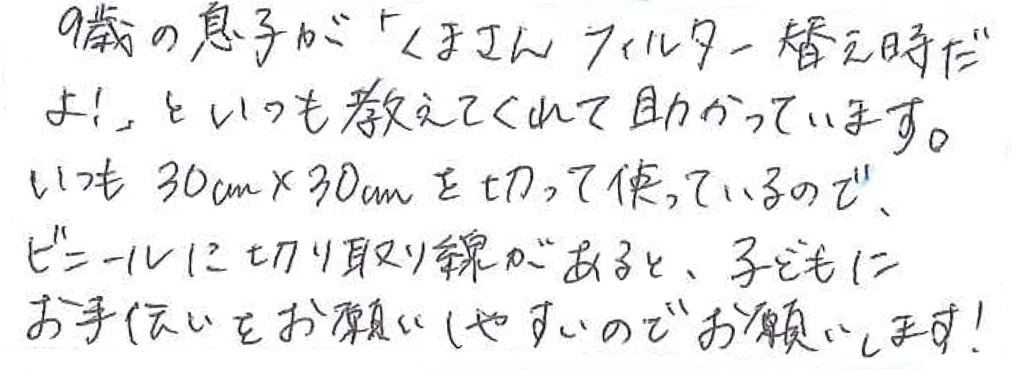 9歳の息子が「くまさん フィルター替え時だ
よ!」といつも教えてくれて助かっています。
いつも 30cm×30cmを切って使っているので、
ビニールに切り取り線があると、子どもに
お手伝いをお願いしやすいのでお願いします!